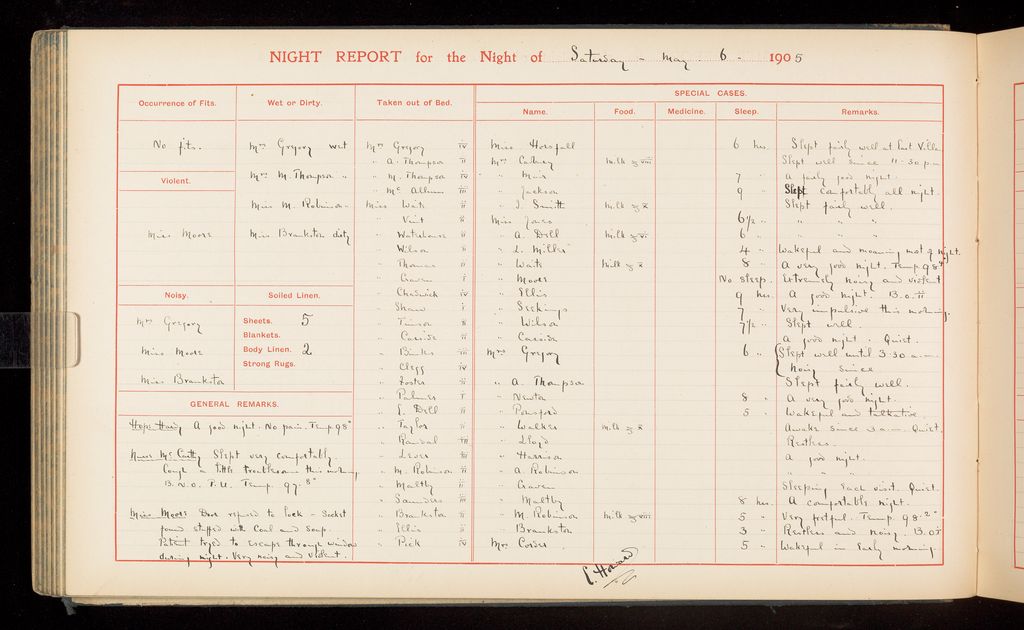 NIGHT REPORT for the Night of Saturday - May 6 - 1905
Occurrence of Fits.
No fits.
Violent.
Miss Moore
Noisy.
Mrs Gregory
Miss Moore
Miss Brankston
Wet or Dirty.
Mrs Gregory wet
Mrs M. Thompson "
Miss M. Robinson -
Miss Brankston dirty
Soiled Linen.
Sheets. 5
Blankets.
Body Linen. 2
Strong Rugs.
GENERAL REMARKS.
A good night. No pain. Temp 98°
Nurse McCarthy Slept very comfortably.
Cough a little troublesome this morning
B.n.o. P.U. Temp. 97.8°
Miss Moore Door refused to lock - Socket
found stuffed with Coal and Soap.
Patient tried to escape through window
during night. Very noisy and violent.
Taken out of Bed.
Mrs Gregory iv
" A. Thompson ii
" M. Thompson iv
" Mc Allum iii
Miss Waite ii
" Vint ii
" Waterhouse ii
" Wilson ii
" Thomas ii
" Craven i
" Chadwick iv
" Shaw i
" ii
" Cassidi ii
" Binks iii
" Clegg iv
" Foster ii
" Palmer i
" E. Dell ii
" Taylor ii
" Randal iii
" Lever iii
" M. Robinson ii
" Maltby ii
" Saunders iii
" Brankston ii
" Ellis ii
" Peck iv
SPECIAL CASES.
Name. Food. Medicine. Sleep. Remarks.
Miss Horsfall 6 hrs. Slept fairly well at East Villa
Mrs milk ℥ viii Slept well since 11-30 p.m.
" Muir 7 " A fairly good night.
" Jackson 9 " Slept comfortably all night.
" J. Smith Milk ℥ x Slept fairly well.
Miss 6½ " " " "
" A. Dell Milk ℥ vi 6 " " " "
" L. Miller 4 " Wakeful and moaning most of night.
" Waite Milk ℥ x 8 " A very good night. Temp 98°
" Moore No sleep. Extremely noisy and violent
" Ellis 9 hrs. A good night. B.o. ii
" 7 " Very impulsive this morning.
" Wilson 7½ " Slept well.
" Cassidi A good night. Quiet.
Mrs Gregory 6 " Slept well until 3-30 a.m.
Noisy since
" A. Thompson Slept fairly well.
" Newton 8 " A very good night.
" Ponsford 5 " Wakeful and talkative.
" Walker Milk ℥ x Awake since 3 a.m. Quiet.
" Lloyd Restless.
" Harrison A good night.
" A. Robinson " " "
" Craven Sleeping each visit. Quiet.
" Maltby 8 hrs. A comfortable night.
" M. Robinson Milk ℥ viii 5 " Very fretful. Temp. 98.2°
" Brankston 3 " Restless and noisy. B.O.
Mrs Corder 5 " Wakeful in early morning.
E. Howard